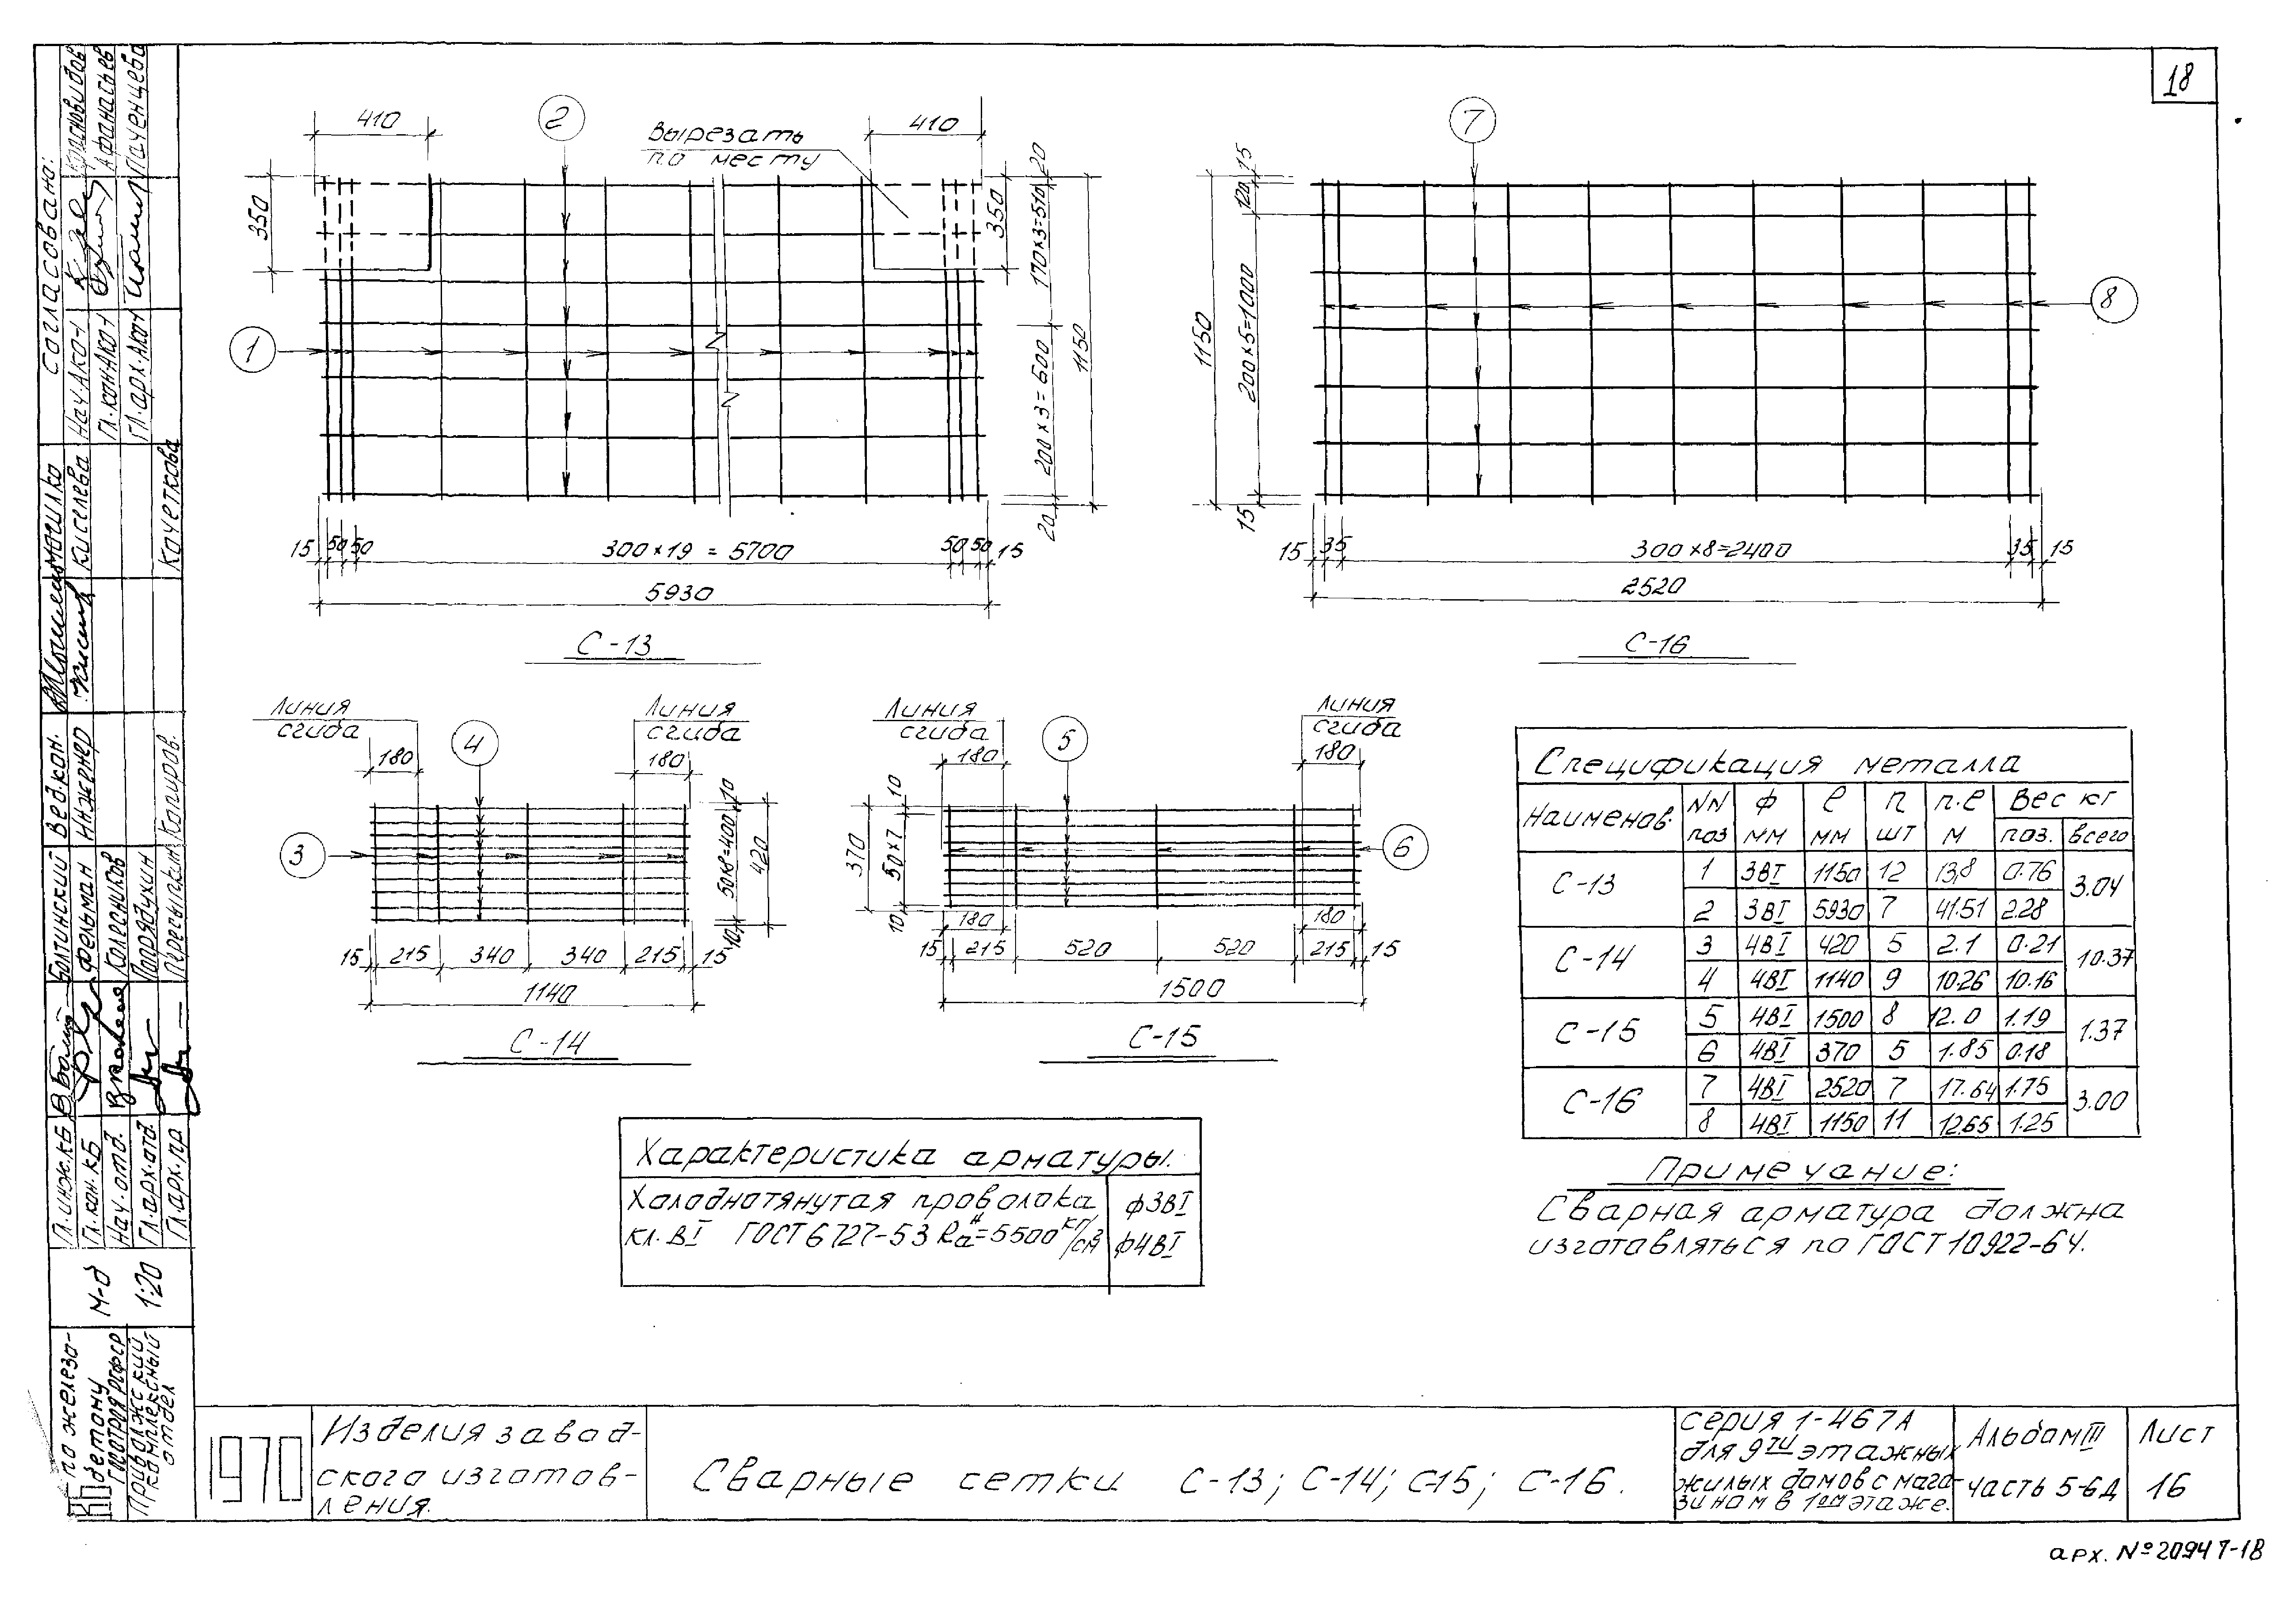 18
410
2
вырезать
по месту
410
350
350
20
170×3=510
200×3=600
20
1150
1
15 50 50
300×19 = 5700
50 50 15
5930
С-13
7
15
120
200×5=1000
15
1150
8
15 35
300×8=2400
35 15
2520
С-16
Линия
сгиба
180
4
Линия
сгиба
180
3
10
50×8=400
10
420
15 215 340 340 215 15
1140
С-14
Линия
сгиба
180
5
Линия
сгиба
180
10
50×7
10
370
6
180
180
15 215 520 520 215 15
1500
С-15
Спецификация металла
Наименов. NN поз ф мм ℓ мм n шт n.ℓ м Вес кг
поз. всего
С-13 1 3ВI 1150 12 13,8 0.76 3.04
2 3ВI 5930 7 41.51 2.28
С-14 3 4ВI 420 5 2.1 0.21 10.37
4 4ВI 1140 9 10.26 10.16
С-15 5 4ВI 1500 8 12.0 1.19 1.37
6 4ВI 370 5 1.85 0.18
С-16 7 4ВI 2520 7 17.64 1.75 3.00
8 4ВI 1150 11 12.65 1.25
Характеристика арматуры.
Холоднотянутая проволока ф3ВI
кл. ВI ГОСТ 6727-53 Rаᴴ=5500 кг/см² ф4ВI
Примечание:
Сварная арматура должна
изготавляться по ГОСТ 10922-64.
Согласовано:
Нач. АКО-1 Красновидов
Гл. кон. АКО-1 Афанасьев
Гл. арх. АКО-1 Паченцева
Вед. кон. Могилко
Инженер Киселева
Копиров. Кочеткова
Гл. инж. КБ Болтинский
Гл. кон. КБ Фельман
Нач. отд. Колесников
Гл. арх. отд. Порядухин
Гл. арх. пр Пересыпкин
М-б 1:20
КБ по железо-
бетону
Госстроя РСФСР
Приволжский
комплексный
отдел
1970
Изделия завод-
ского изготов-
ления.
Сварные сетки С-13; С-14; С-15; С-16.
серия 1-467А
для 9ти этажных
жилых домов с мага-
зином в 1ом этаже.
Альбом III
часть 5-6Д
Лист
16
арх. № 20947-18